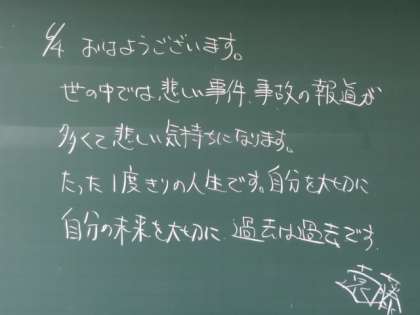 6/4 おはようございます。
世の中では、悲しい事件、事故の報道が
多くて悲しい気持ちになります。
たった1度きりの人生です。自分を大切に
自分の未来を大切に 過去は過去です。
遠藤